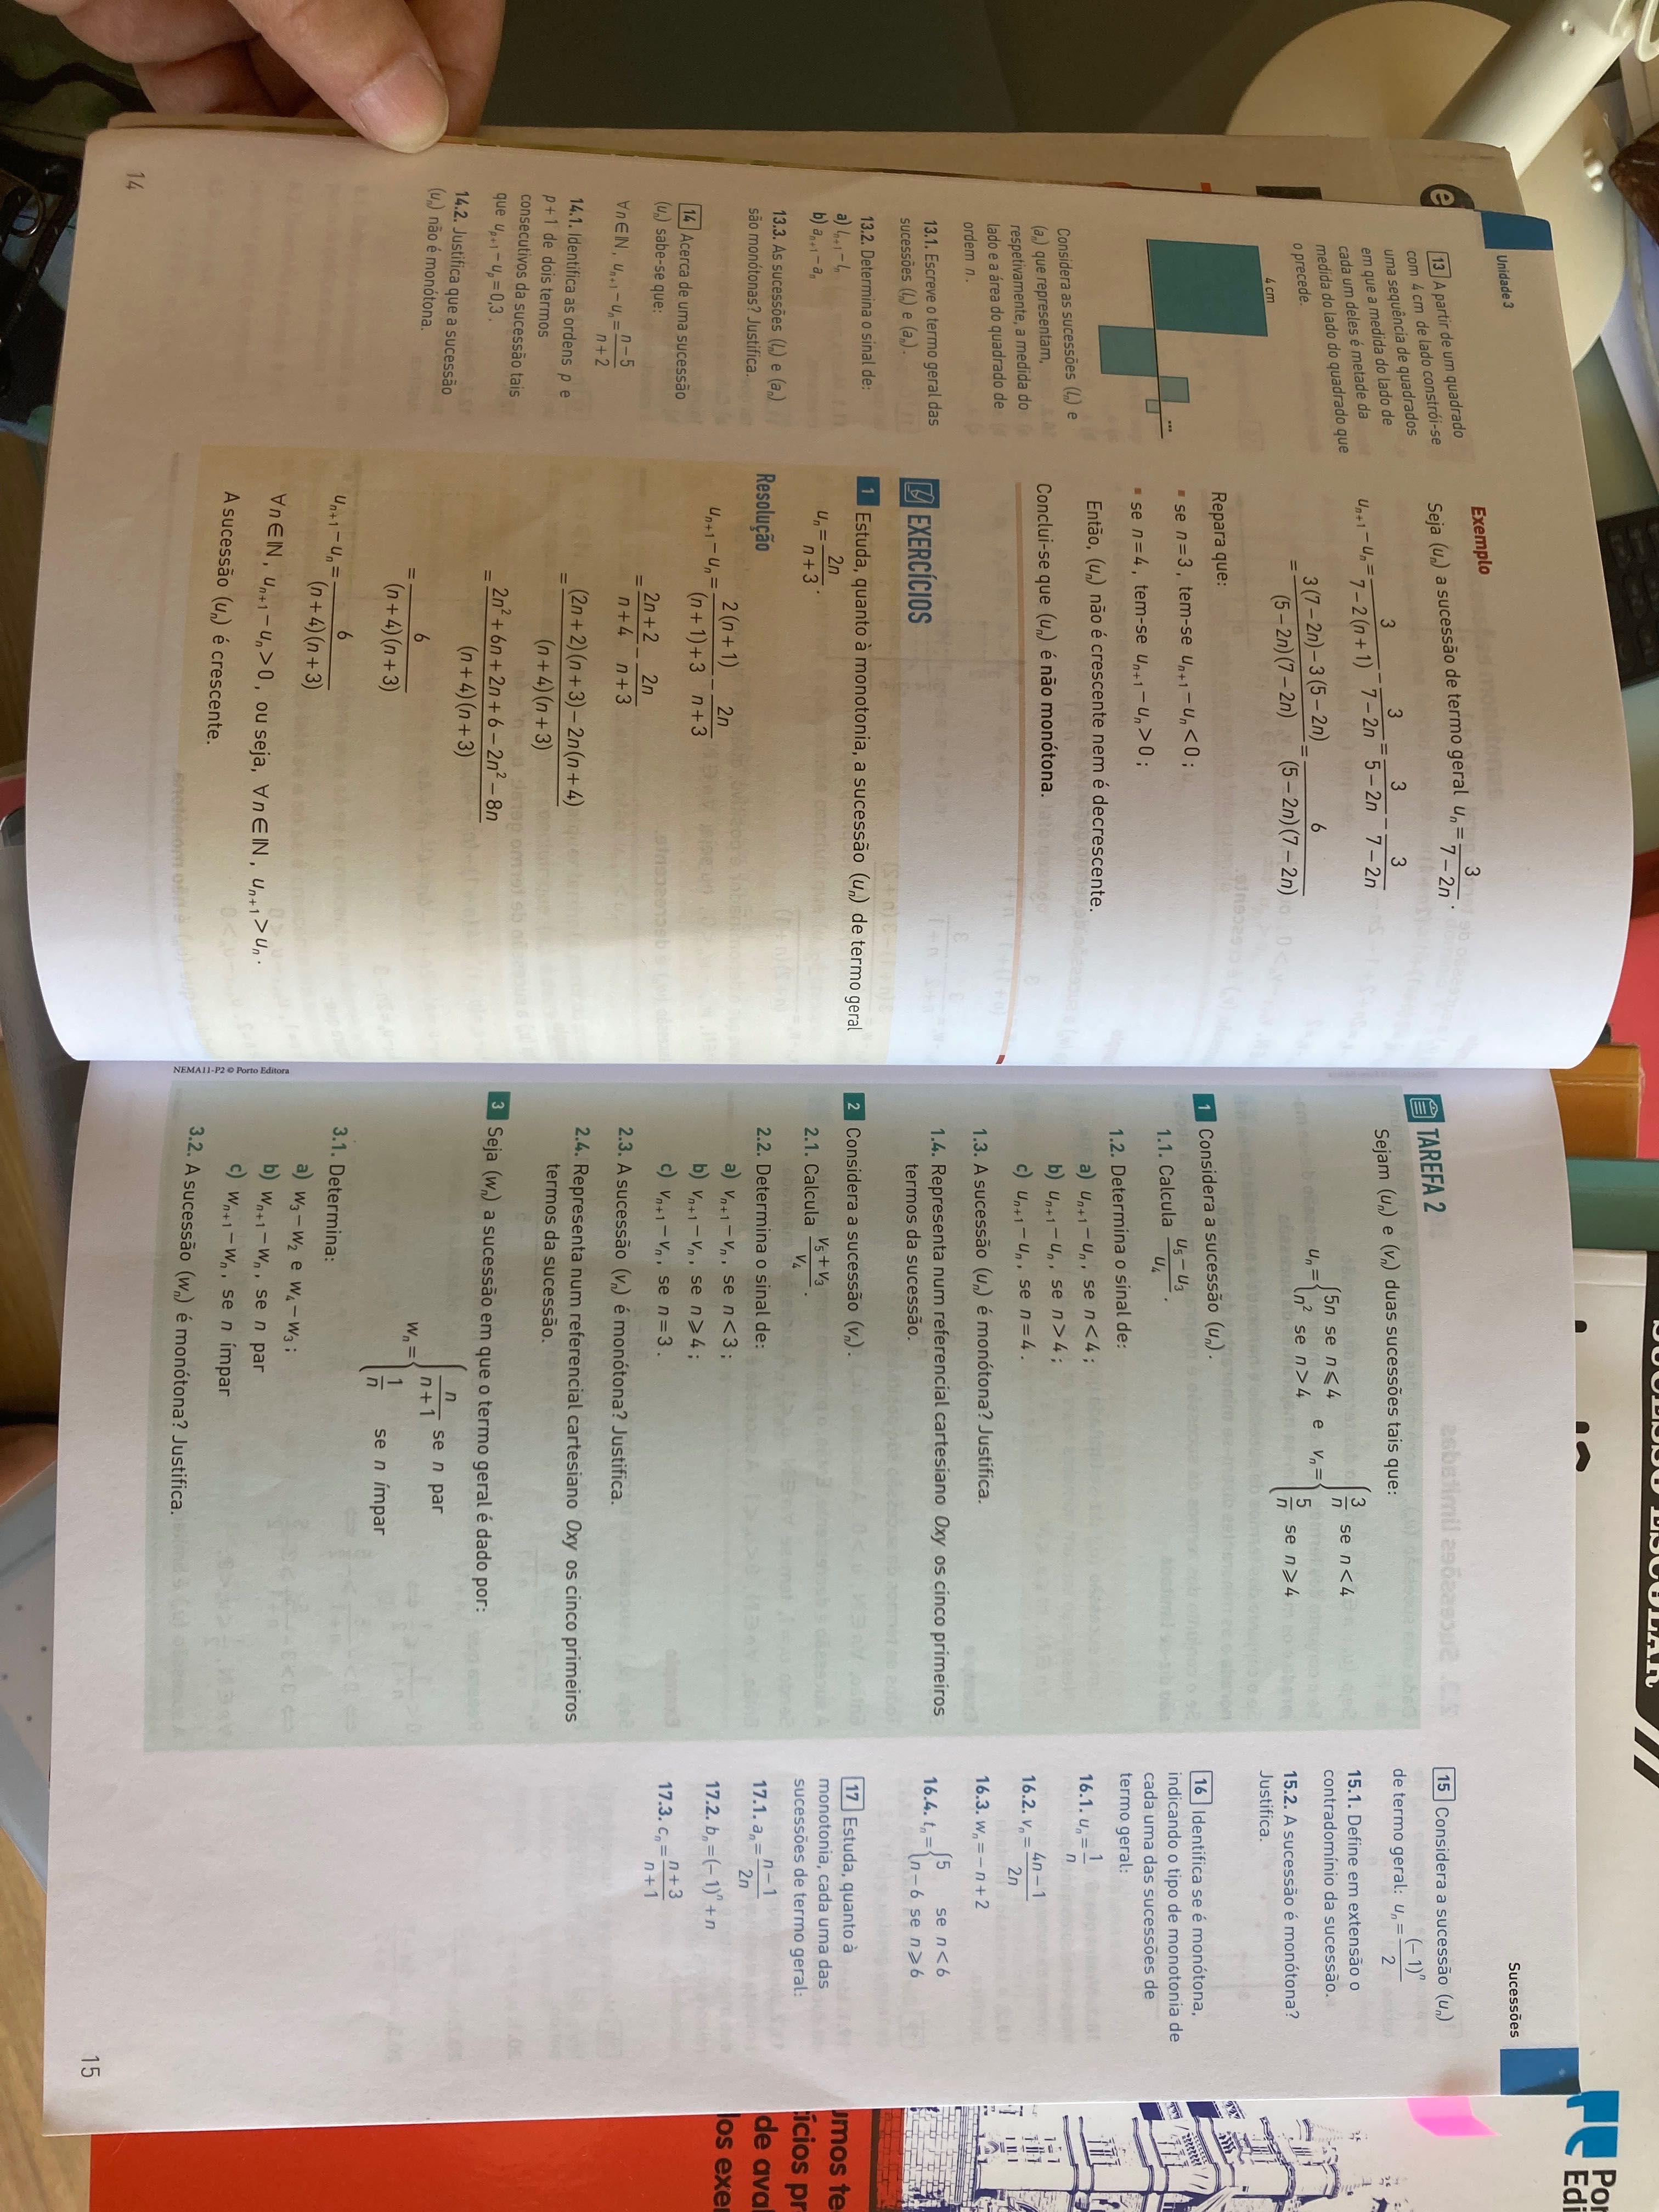 Unidade 3
13 A partir de um quadrado
com 4 cm de lado constrói-se
uma sequência de quadrados
em que a medida do lado de
cada um deles é metade da
medida do lado do quadrado que
o precede.
4 cm
...
Considera as sucessões (lₙ) e
(aₙ) que representam,
respetivamente, a medida do
lado e a área do quadrado de
ordem n.
13.1. Escreve o termo geral das
sucessões (lₙ) e (aₙ).
13.2. Determina o sinal de:
a) lₙ₊₁ − lₙ
b) aₙ₊₁ − aₙ
13.3. As sucessões (lₙ) e (aₙ)
são monótonas? Justifica.
14 Acerca de uma sucessão
(uₙ) sabe-se que:
∀n ∈ ℕ, uₙ₊₁ − uₙ = (n − 5)/(n + 2)
14.1. Identifica as ordens p e
p + 1 de dois termos
consecutivos da sucessão tais
que uₚ₊₁ − uₚ = 0,3.
14.2. Justifica que a sucessão
(uₙ) não é monótona.
14
Exemplo
Seja (uₙ) a sucessão de termo geral uₙ = 3/(7 − 2n).
uₙ₊₁ − uₙ = 3/(7 − 2(n + 1)) − 3/(7 − 2n) = 3/(5 − 2n) − 3/(7 − 2n)
= (3(7 − 2n) − 3(5 − 2n))/((5 − 2n)(7 − 2n)) = 6/((5 − 2n)(7 − 2n))
Repara que:
▪ se n = 3, tem-se uₙ₊₁ − uₙ < 0;
▪ se n = 4, tem-se uₙ₊₁ − uₙ > 0;
Então, (uₙ) não é crescente nem é decrescente.
Conclui-se que (uₙ) é não monótona.
EXERCÍCIOS
1 Estuda, quanto à monotonia, a sucessão (uₙ) de termo geral
uₙ = 2n/(n + 3).
Resolução
uₙ₊₁ − uₙ = 2(n + 1)/((n + 1) + 3) − 2n/(n + 3)
= (2n + 2)/(n + 4) − 2n/(n + 3)
= ((2n + 2)(n + 3) − 2n(n + 4))/((n + 4)(n + 3))
= (2n² + 6n + 2n + 6 − 2n² − 8n)/((n + 4)(n + 3))
= 6/((n + 4)(n + 3))
uₙ₊₁ − uₙ = 6/((n + 4)(n + 3))
∀n ∈ ℕ, uₙ₊₁ − uₙ > 0, ou seja, ∀n ∈ ℕ, uₙ₊₁ > uₙ.
A sucessão (uₙ) é crescente.
NEMA11-P2 © Porto Editora
TAREFA 2
Sejam (uₙ) e (vₙ) duas sucessões tais que:
uₙ = { 5n se n ⩽ 4 ; n² se n > 4 e vₙ = { 3/n se n < 4 ; 5/n se n ⩾ 4
1 Considera a sucessão (uₙ).
1.1. Calcula (u₅ − u₃)/u₄.
1.2. Determina o sinal de:
a) uₙ₊₁ − uₙ, se n < 4;
b) uₙ₊₁ − uₙ, se n > 4;
c) uₙ₊₁ − uₙ, se n = 4.
1.3. A sucessão (uₙ) é monótona? Justifica.
1.4. Representa num referencial cartesiano Oxy os cinco primeiros
termos da sucessão.
2 Considera a sucessão (vₙ).
2.1. Calcula (v₅ + v₃)/v₄.
2.2. Determina o sinal de:
a) vₙ₊₁ − vₙ, se n < 3;
b) vₙ₊₁ − vₙ, se n ⩾ 4;
c) vₙ₊₁ − vₙ, se n = 3.
2.3. A sucessão (vₙ) é monótona? Justifica.
2.4. Representa num referencial cartesiano Oxy os cinco primeiros
termos da sucessão.
3 Seja (wₙ) a sucessão em que o termo geral é dado por:
wₙ = { n/(n + 1) se n par ; 1/n se n ímpar
3.1. Determina:
a) w₃ − w₂ e w₄ − w₃;
b) wₙ₊₁ − wₙ, se n par
c) wₙ₊₁ − wₙ, se n ímpar
3.2. A sucessão (wₙ) é monótona? Justifica.
Sucessões
15 Considera a sucessão (uₙ)
de termo geral: uₙ = (−1)ⁿ/2
15.1. Define em extensão o
contradomínio da sucessão.
15.2. A sucessão é monótona?
Justifica.
16 Identifica se é monótona,
indicando o tipo de monotonia de
cada uma das sucessões de
termo geral:
16.1. uₙ = 1/n
16.2. vₙ = (4n − 1)/2n
16.3. wₙ = −n + 2
16.4. tₙ = { 5 se n < 6 ; n − 6 se n ⩾ 6
17 Estuda, quanto à
monotonia, cada uma das
sucessões de termo geral:
17.1. aₙ = (n − 1)/2n
17.2. bₙ = (−1)ⁿ + n
17.3. cₙ = (n + 3)/(n + 1)
15